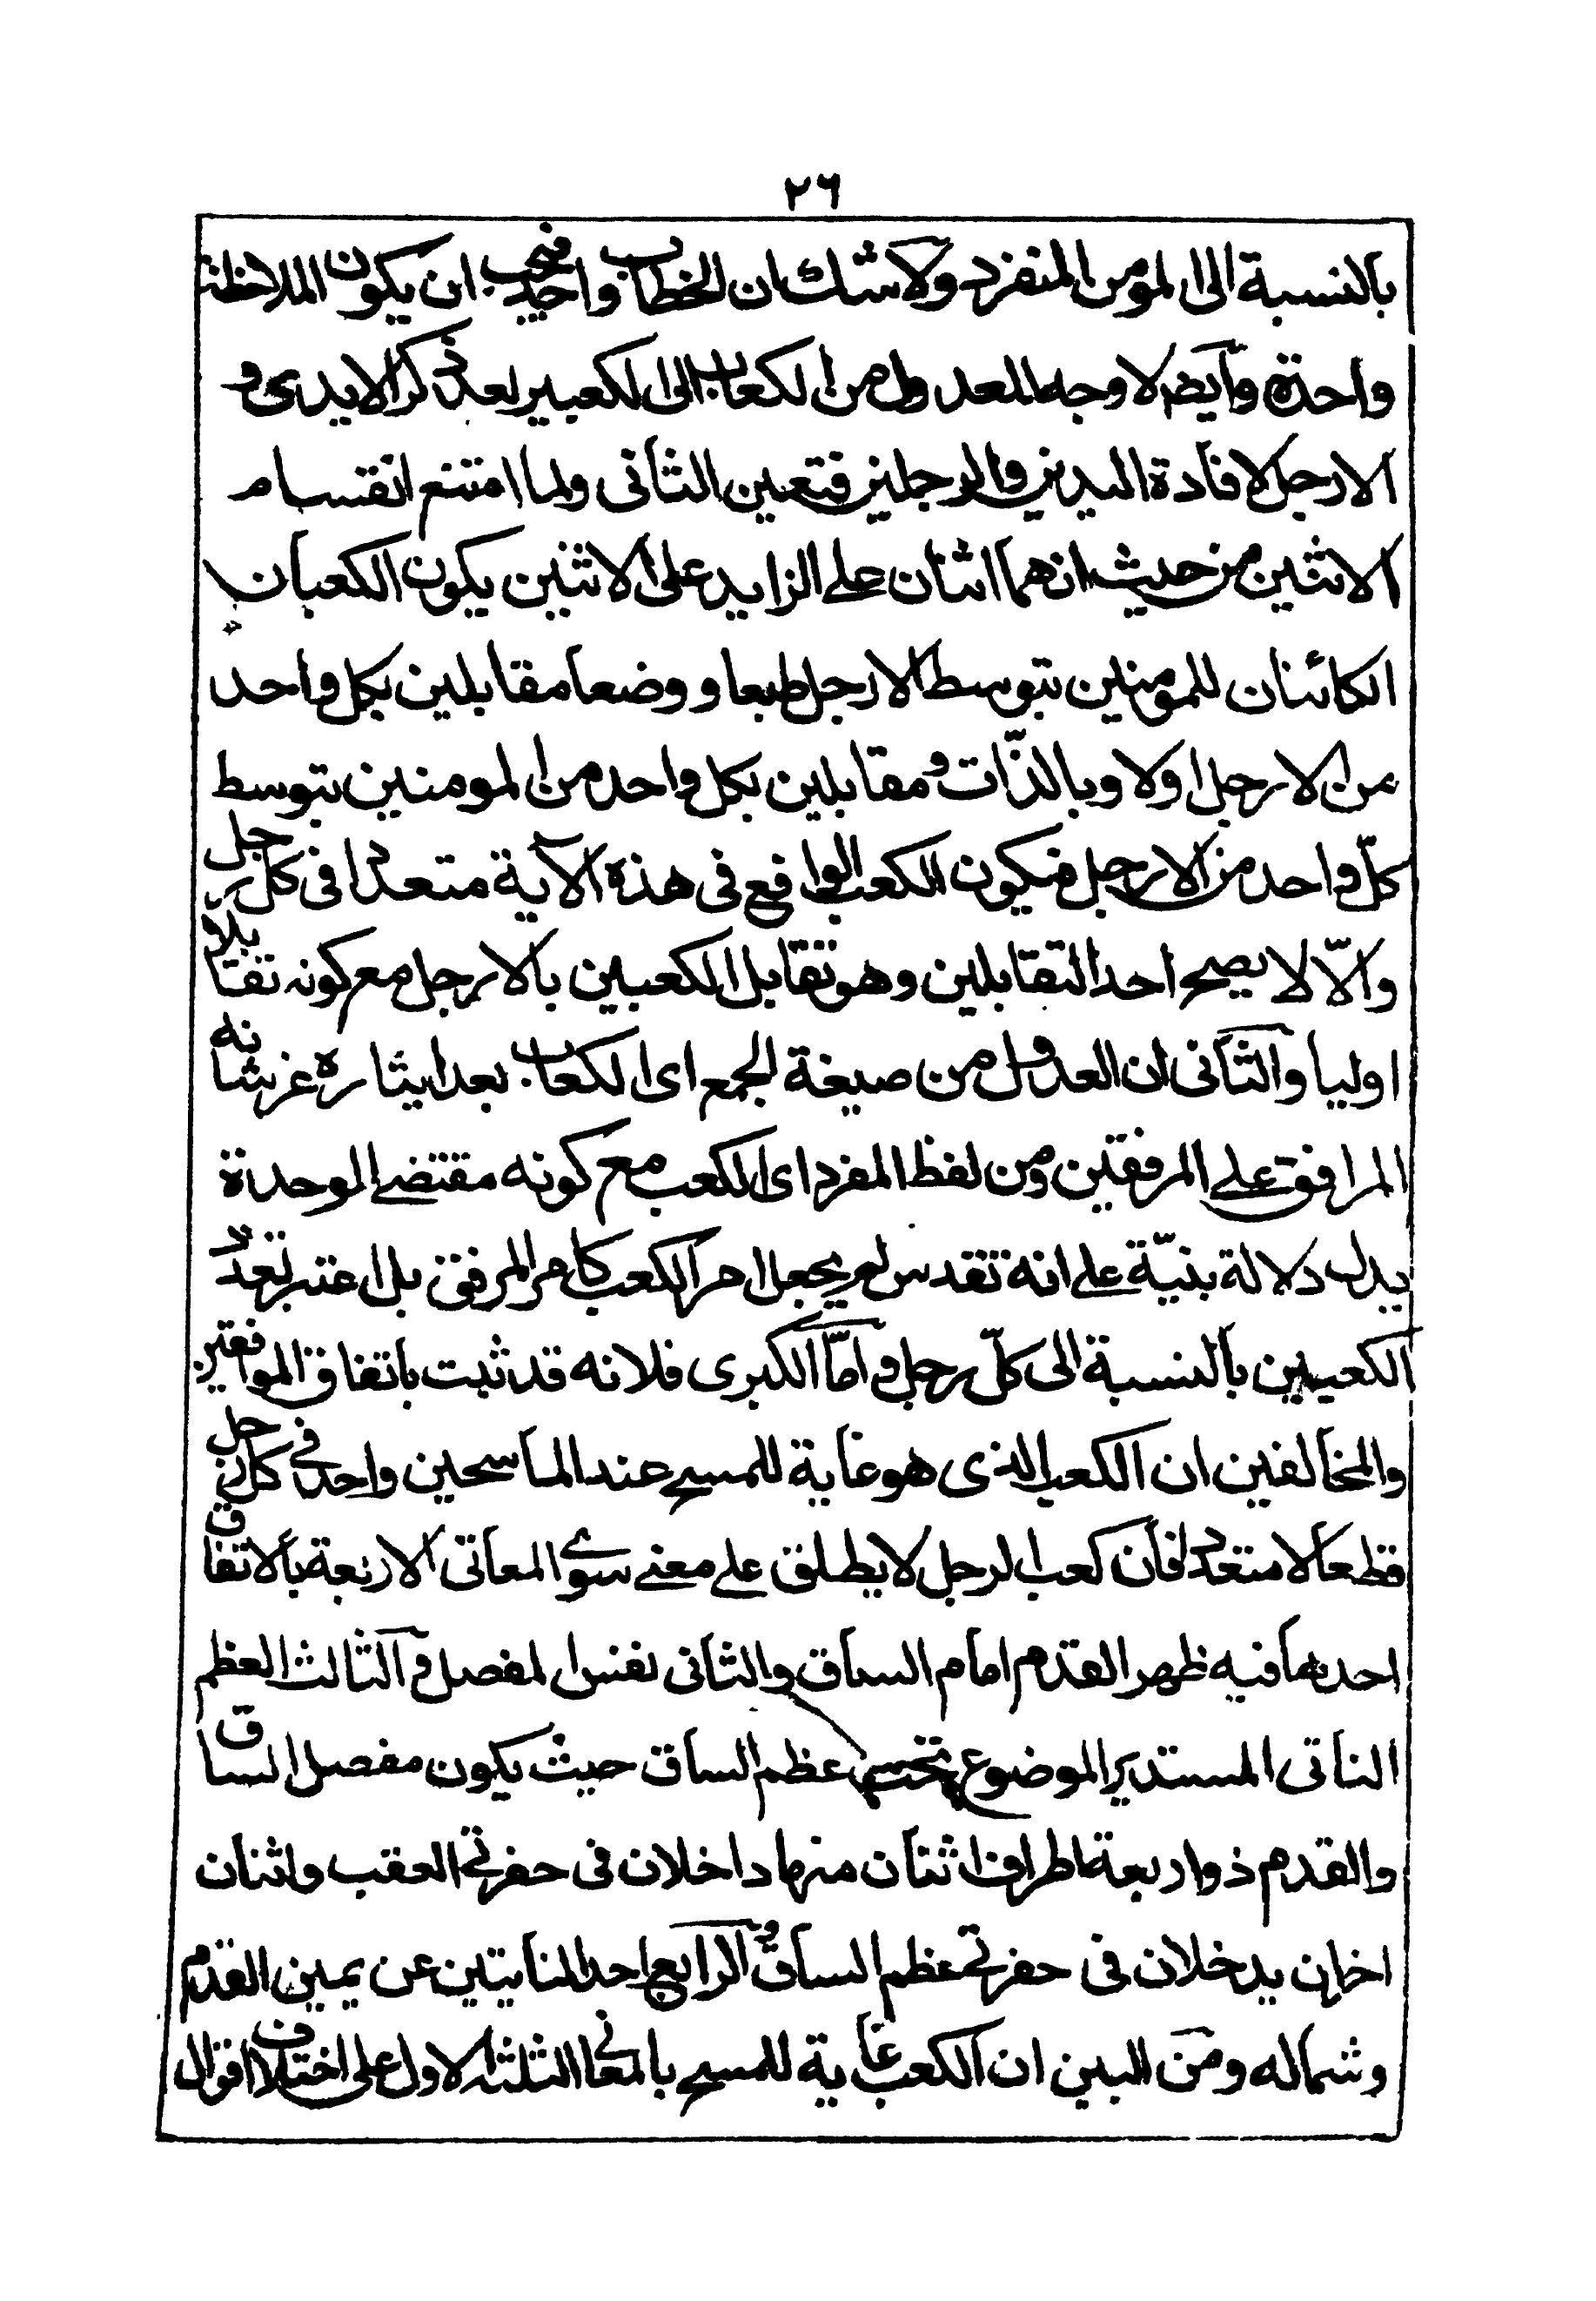 ٢٦
بالنسبة الى المومن المنفرد ولا شك ان الخطاب واحد فيجب ان يكون الملاحظة
واحدة وايضا لا وجه للعدول من الكعاب الى الكعبين بعد ذكر الايدى و
الارجل لافادة اليدين والرجلين فتعين الثانى ولما امتنع انقسام
الاثنين من حيث انهما اثنان على الزايد على الاثنين يكون الكعبان
الكائنان للمومنين بتوسط الارجل طبعا و وضعا مقابلين بكل واحد
من الارجل اولا وبالذّات و مقابلين بكل واحد من المومنين بتوسط
كلّ واحد من الارجل فيكون الكعب الواقع فى هذه الآية متعددا فى كل رجل
والّا لا يصح احد التقابلين وهو تقابل الكعبين بالارجل مع كونه تقابلا
اوليا والثانى ان العدول من صيغة الجمع اى الكعاب بعد ايثاره عز شانه
المرافق على المرفقين ومن لفظ المفرد اى الكعب مع كونه مقتضى الوحدة
يدل دلالة بنيّة على انه تقدس لم يجعل امر الكعب كامر المرفق بل اعتبر تعدّد
الكعبين بالنسبة الى كلّ رجل و امّا الكبرى فلانه قد ثبت باتفاق الموافقين
والمخالفين ان الكعب الذى هو غاية للمسح عند الماسحين واحد فى كل رجل
قطعا لا متعدد فان كعب الرجل لا يطلق على معنى سوى المعانى الاربعة بالاتفاق
احدها فيه ظهر القدم امام الساق والثانى نفس المفصل و الثالث العظم
الناتى المستدير الموضوع تحت عظم الساق حيث يكون مفصل الساق
والقدم ذو اربعة اطراف اثنان منها داخلان فى حفرتى العقب واثنان
اخران يدخلان فى حفرتى عظم الساق و الرابع احد الناتيتين عن يمين القدم
وشماله ومن البين ان الكعب غاية للمسح بالمعانى الثلثة الاول على اختلاف اقوال